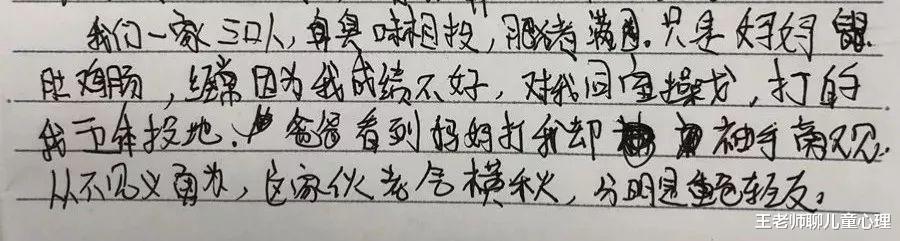 我们一家三口人，臭味相投，肥猪满圈。只是妈妈鼠
肚鸡肠，经常因为我成绩不好，对我同室操戈，打的
我五体投地。爸爸看到妈妈打我却袖手旁观。
从不见义勇为，这家伙老气横秋，分明是重色轻友。
王老师聊儿童心理